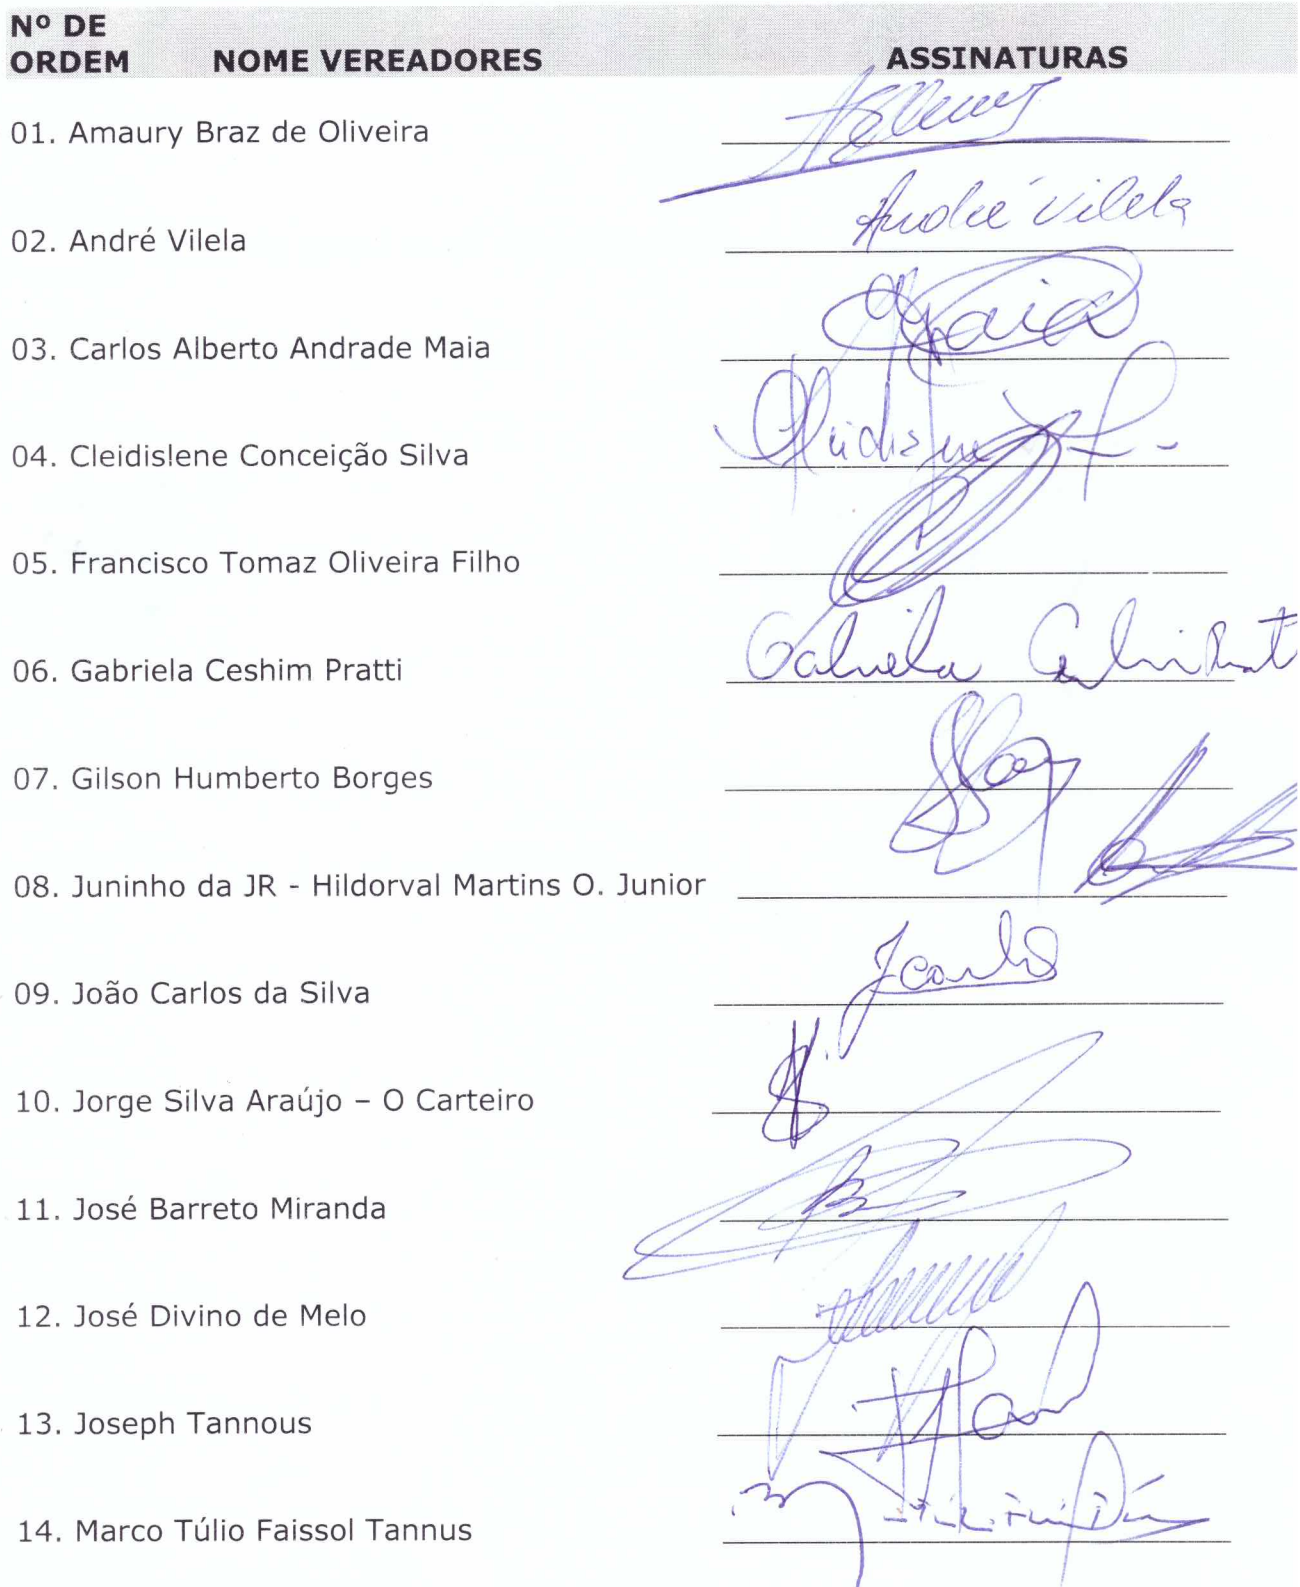 Nº DE
ORDEM NOME VEREADORES ASSINATURAS
01. Amaury Braz de Oliveira
02. André Vilela André Vilela
03. Carlos Alberto Andrade Maia Maia
04. Cleidislene Conceição Silva
05. Francisco Tomaz Oliveira Filho
06. Gabriela Ceshim Pratti Gabriela
07. Gilson Humberto Borges
08. Juninho da JR - Hildorval Martins O. Junior
09. João Carlos da Silva Jcarlos
10. Jorge Silva Araújo – O Carteiro
11. José Barreto Miranda
12. José Divino de Melo
13. Joseph Tannous
14. Marco Túlio Faissol Tannus